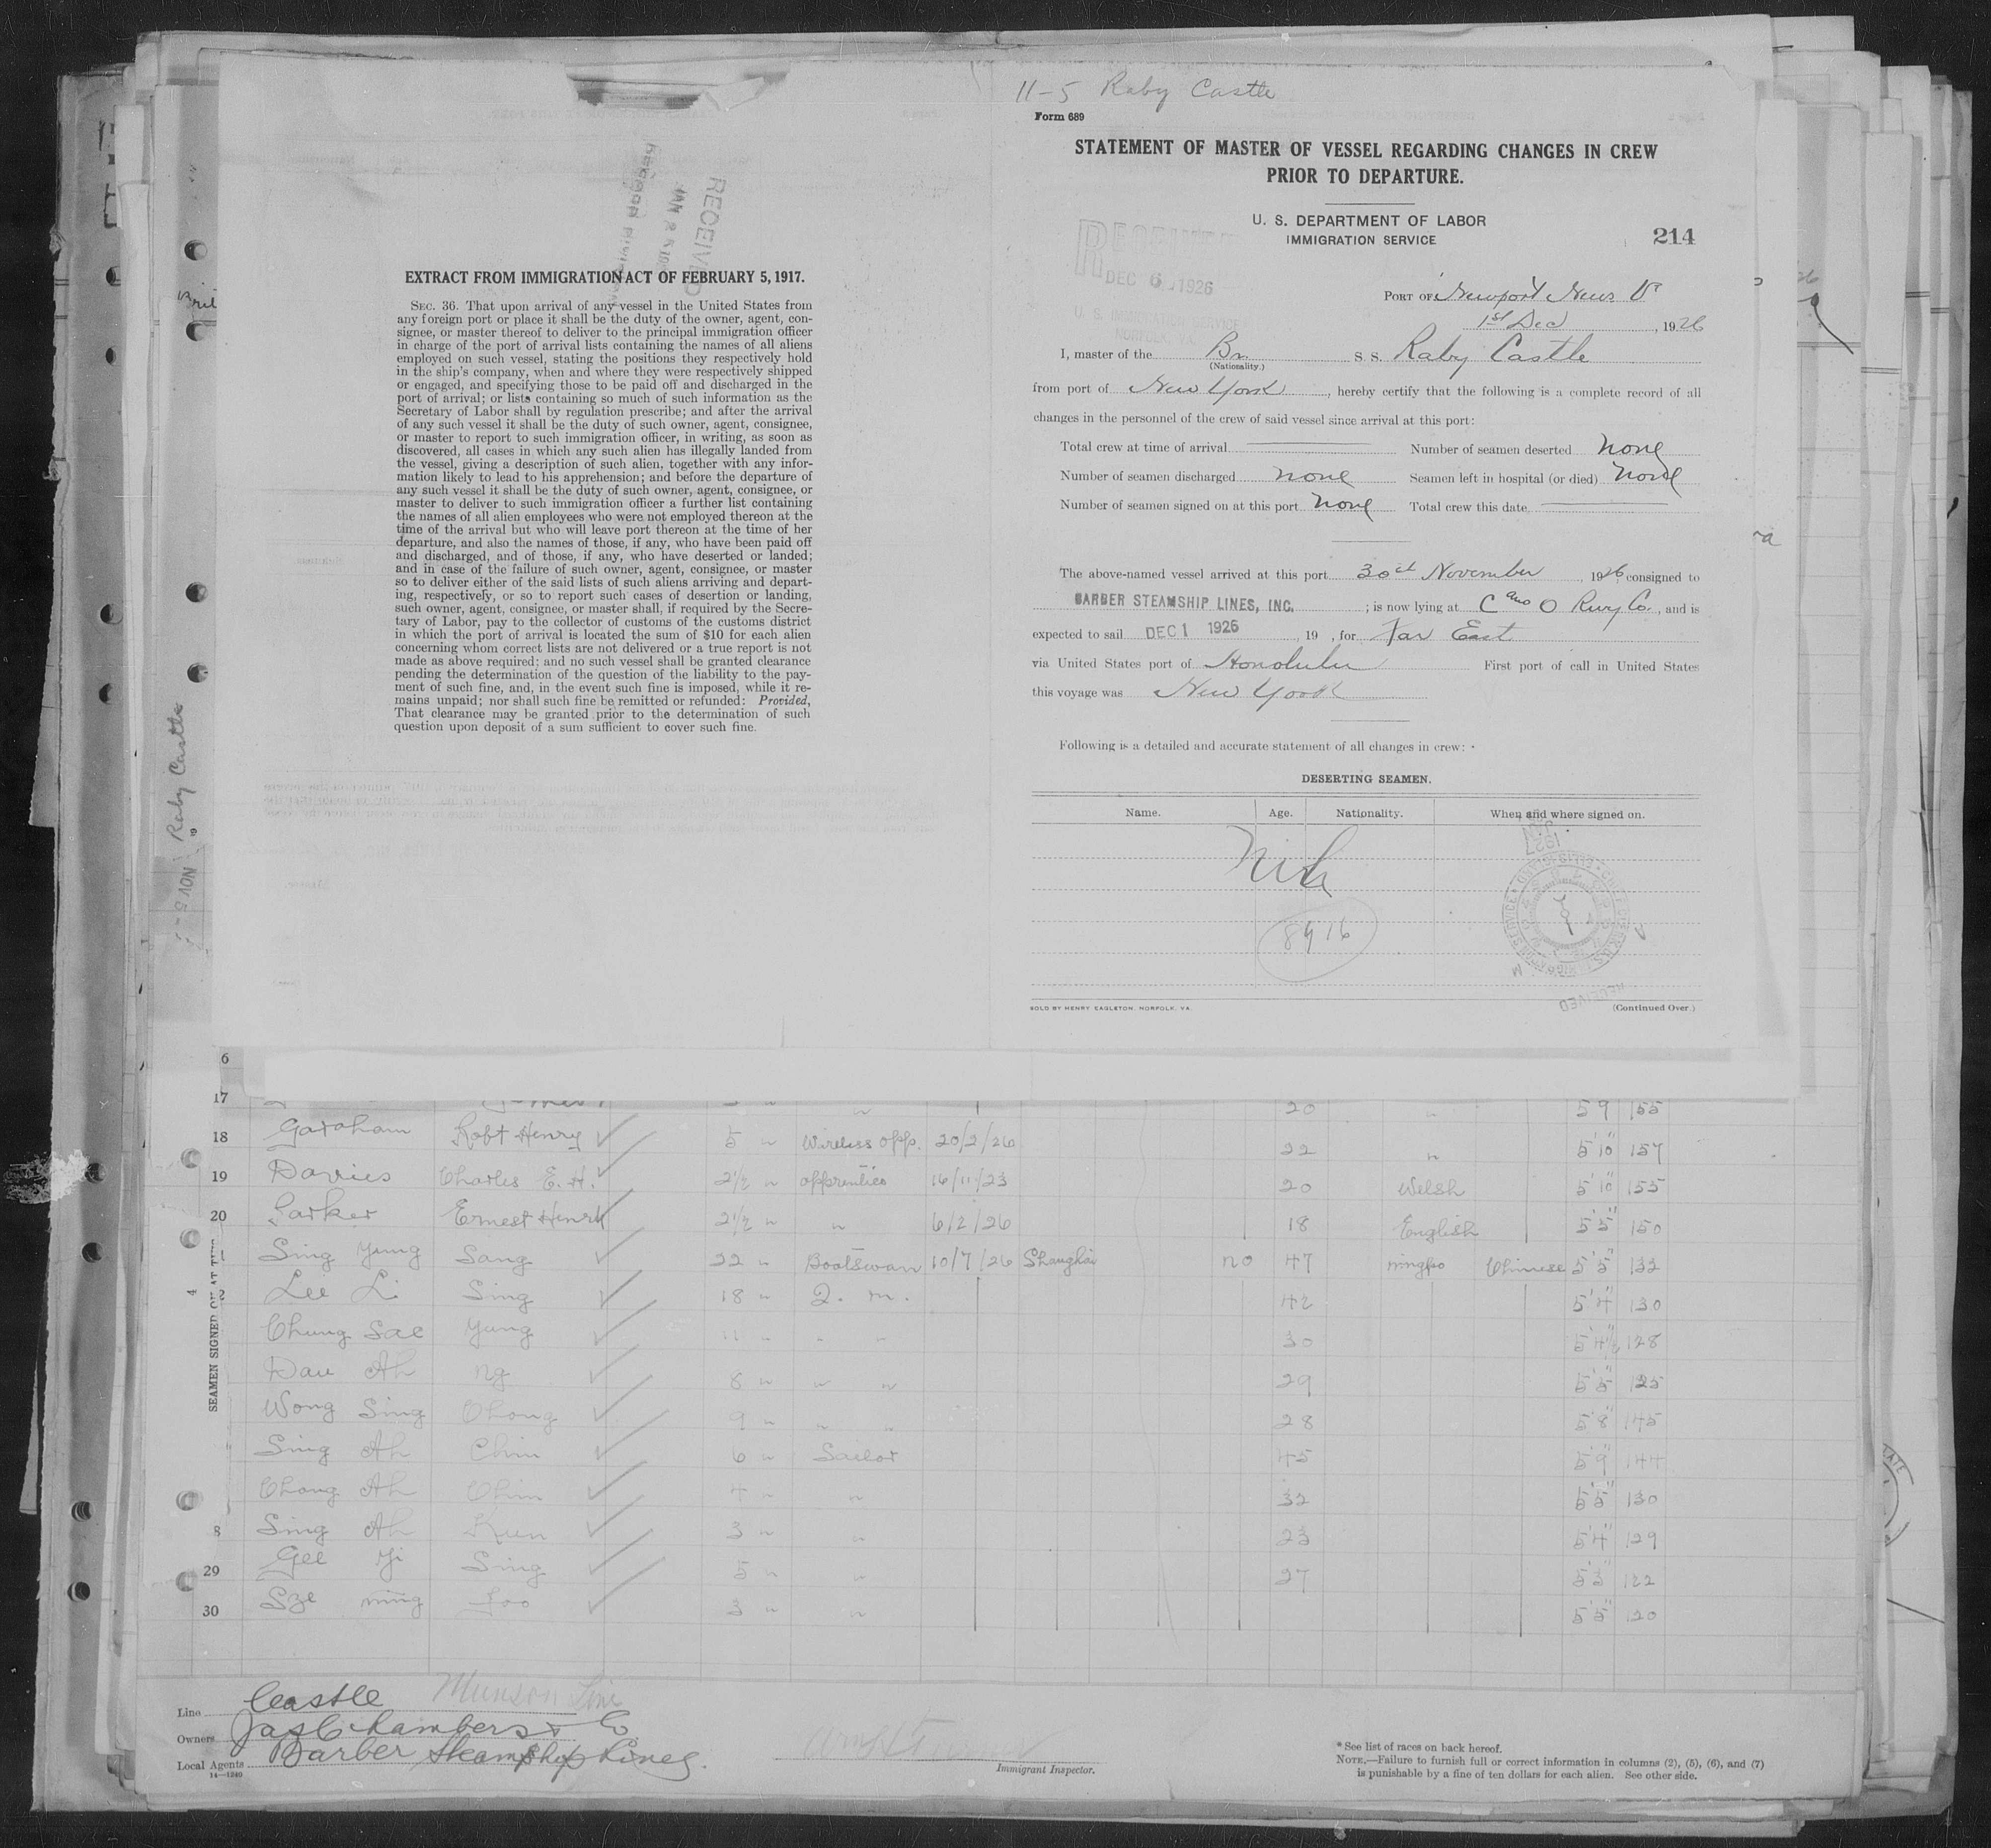 11-5 Raby Castle
Form 689
STATEMENT OF MASTER OF VESSEL REGARDING CHANGES IN CREW
PRIOR TO DEPARTURE.
U. S. DEPARTMENT OF LABOR
IMMIGRATION SERVICE
214
DEC 6 1926
U. S. IMMIGRATION SERVICE
NORFOLK, VA.
PORT OF Newport News Va
1st Dec, 1926
I, master of the Br. S S. Raby Castle
(Nationality.)
from port of New York, hereby certify that the following is a complete record of all
changes in the personnel of the crew of said vessel since arrival at this port:
Total crew at time of arrival Number of seamen deserted none
Number of seamen discharged none Seamen left in hospital (or died) none
Number of seamen signed on at this port none Total crew this date
The above-named vessel arrived at this port 30th November, 1926 consigned to
BARBER STEAMSHIP LINES, INC. ; is now lying at C and O Rwy Co., and is
expected to sail DEC 1 1926, 19 , for Far East
via United States port of Honolulu First port of call in United States
this voyage was New York
Following is a detailed and accurate statement of all changes in crew:
DESERTING SEAMEN.
Name. Age. Nationality. When and where signed on.
Nil
8916
SOLD BY HENRY EAGLETON, NORFOLK, VA. (Continued Over.)
RECEIVED
EXTRACT FROM IMMIGRATION ACT OF FEBRUARY 5, 1917.
SEC. 36. That upon arrival of any vessel in the United States from
any foreign port or place it shall be the duty of the owner, agent, con-
signee, or master thereof to deliver to the principal immigration officer
in charge of the port of arrival lists containing the names of all aliens
employed on such vessel, stating the positions they respectively hold
in the ship's company, when and where they were respectively shipped
or engaged, and specifying those to be paid off and discharged in the
port of arrival; or lists containing so much of such information as the
Secretary of Labor shall by regulation prescribe; and after the arrival
of any such vessel it shall be the duty of such owner, agent, consignee,
or master to report to such immigration officer, in writing, as soon as
discovered, all cases in which any such alien has illegally landed from
the vessel, giving a description of such alien, together with any infor-
mation likely to lead to his apprehension; and before the departure of
any such vessel it shall be the duty of such owner, agent, consignee, or
master to deliver to such immigration officer a further list containing
the names of all alien employees who were not employed thereon at the
time of the arrival but who will leave port thereon at the time of her
departure, and also the names of those, if any, who have been paid off
and discharged, and of those, if any, who have deserted or landed;
and in case of the failure of such owner, agent, consignee, or master
so to deliver either of the said lists of such aliens arriving and depart-
ing, respectively, or so to report such cases of desertion or landing,
such owner, agent, consignee, or master shall, if required by the Secre-
tary of Labor, pay to the collector of customs of the customs district
in which the port of arrival is located the sum of $10 for each alien
concerning whom correct lists are not delivered or a true report is not
made as above required; and no such vessel shall be granted clearance
pending the determination of the question of the liability to the pay-
ment of such fine, and, in the event such fine is imposed, while it re-
mains unpaid; nor shall such fine be remitted or refunded: Provided,
That clearance may be granted prior to the determination of such
question upon deposit of a sum sufficient to cover such fine.
RECEIVED
Raby Castle
NOV 5
6
17 " " 20 " 5 9 155
18 Garaham Robt Henry 5 " Wireless opp. 20/2/26 22 " 5'10" 157
19 Davies Charles E. H. 2½ " apprentice 16/11/23 20 Welsh 5'10" 155
20 Parker Ernest Henry 2½ " " 6/2/26 18 English 5'5" 150
Sing Yung Sang 22 " Boatswan 10/7/26 Shanghai no 47 ningpo Chinese 5'5" 132
Lee Li Sing 18 " Q. m. 42 5'4" 130
Chung Sae Yung 11 " " " 30 5'4½ 128
Dau Ah ng 8 " " " 29 5'5" 125
Wong Sing Chong 9 " " " 28 5'8" 145
Sing Ah Chin 6 " Sailor 45 5'9" 144
Chong Ah Chin 4 " " 32 5'5" 130
8 Sing Ah Kun 3 " " 23 5'4" 129
29 Gee Yi Sing 5 " " 27 5'3" 122
30 Sze ming Foo 3 " " 5'5" 120
SEAMEN SIGNED ON AT THIS
Line Castle Munson Line
Owners Jas Chambers & Co
Local Agents Barber Steamship Lines.
14—1240
Immigrant Inspector.
* See list of races on back hereof.
NOTE.—Failure to furnish full or correct information in columns (2), (5), (6), and (7)
is punishable by a fine of ten dollars for each alien. See other side.